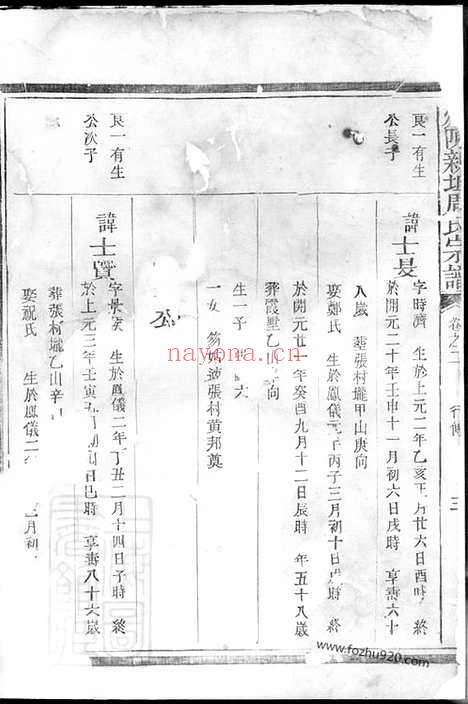 新 周氏宗譜 卷之二 行傳 三
良一有生
公長子
諱士 字時濟 生於上元二年乙亥正月廿六日酉時 終
於開元二十年壬申十一月初六日戌時 享壽六十
八歲 葬張村壠甲山庚向
娶鄭氏 生於鳳儀元年丙子三月初十日 時 終
於開元廿一年癸酉九月十二日辰時 年五十八歲
葬霞墅乙山 向
生一子 六
一女 適張村黃邦奠
公
良一有生
公次子
諱士賢 字 生於鳳儀二年丁丑二月十四日子時 終
於上元三年壬寅 月 日巳時 享壽八十六歲
葬張村壠乙山辛
娶祝氏 生於鳳儀二 二月初
nayona.cn
www.fozhu920.com